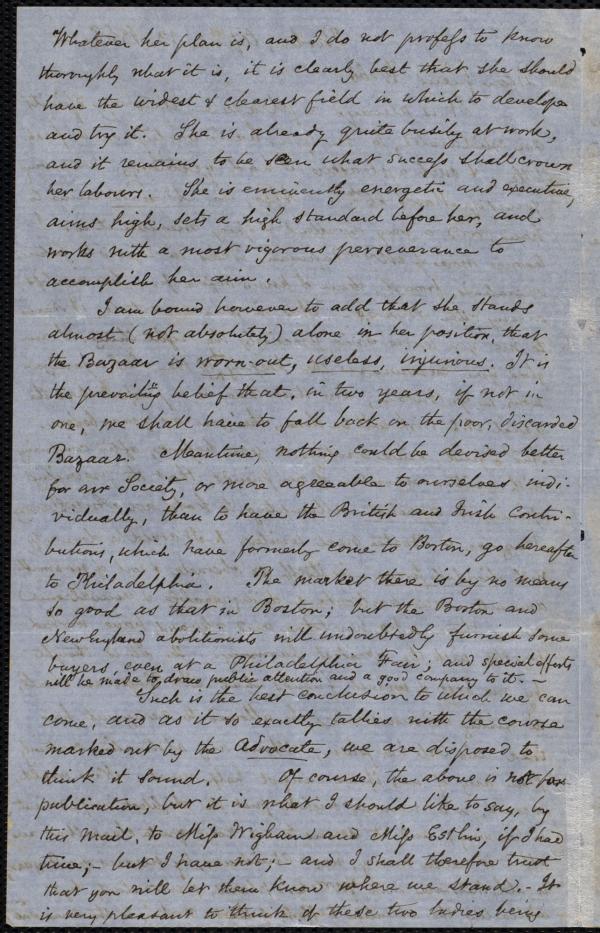 Whatever her plan is, and I do not profess to know
thoroughly what it is, it is clearly best that she should
have the widest & clearest field in which to develope
and try it. She is already quite busily at work,
and it remains to be seen what success shall crown
her labours. She is eminently energetic and executive,
aims high, sets a high standard before her, and
works with a most vigorous perseverance to
accomplish her aim.
I am bound however to add that she stands
almost (not absolutely) alone in her position, that
the Bazaar is worn-out, useless, injurious. It is
the prevailing belief that, in two years, if not in
one, we shall have to fall back on the poor, discarded
Bazaar. Meantime, nothing could be devised better
for our Society, or more agreeable to ourselves indi-
vidually, than to have the British and Irish Contri-
butions, which have formerly come to Boston, go hereafter
to Philadelphia. The market there is by no means
so good as that in Boston; but the Boston and
New England abolitionists will undoubtedly furnish some
buyers, even at a Philadelphia Fair; and special efforts
will be made to draw public attention and a good company to it. –
Such is the best conclusion to which we can
come, and as it so exactly tallies with the course
marked out by the Advocate, we are disposed to
think it sound. Of course, the above is not for
publication, but it is what I should like to say, by
this mail, to Miss Wigham and Miss Estlin, if I had
time; – but I have not; – and I shall therefore trust
that you will let them know where we stand. – It
is very pleasant to think of these two ladies being